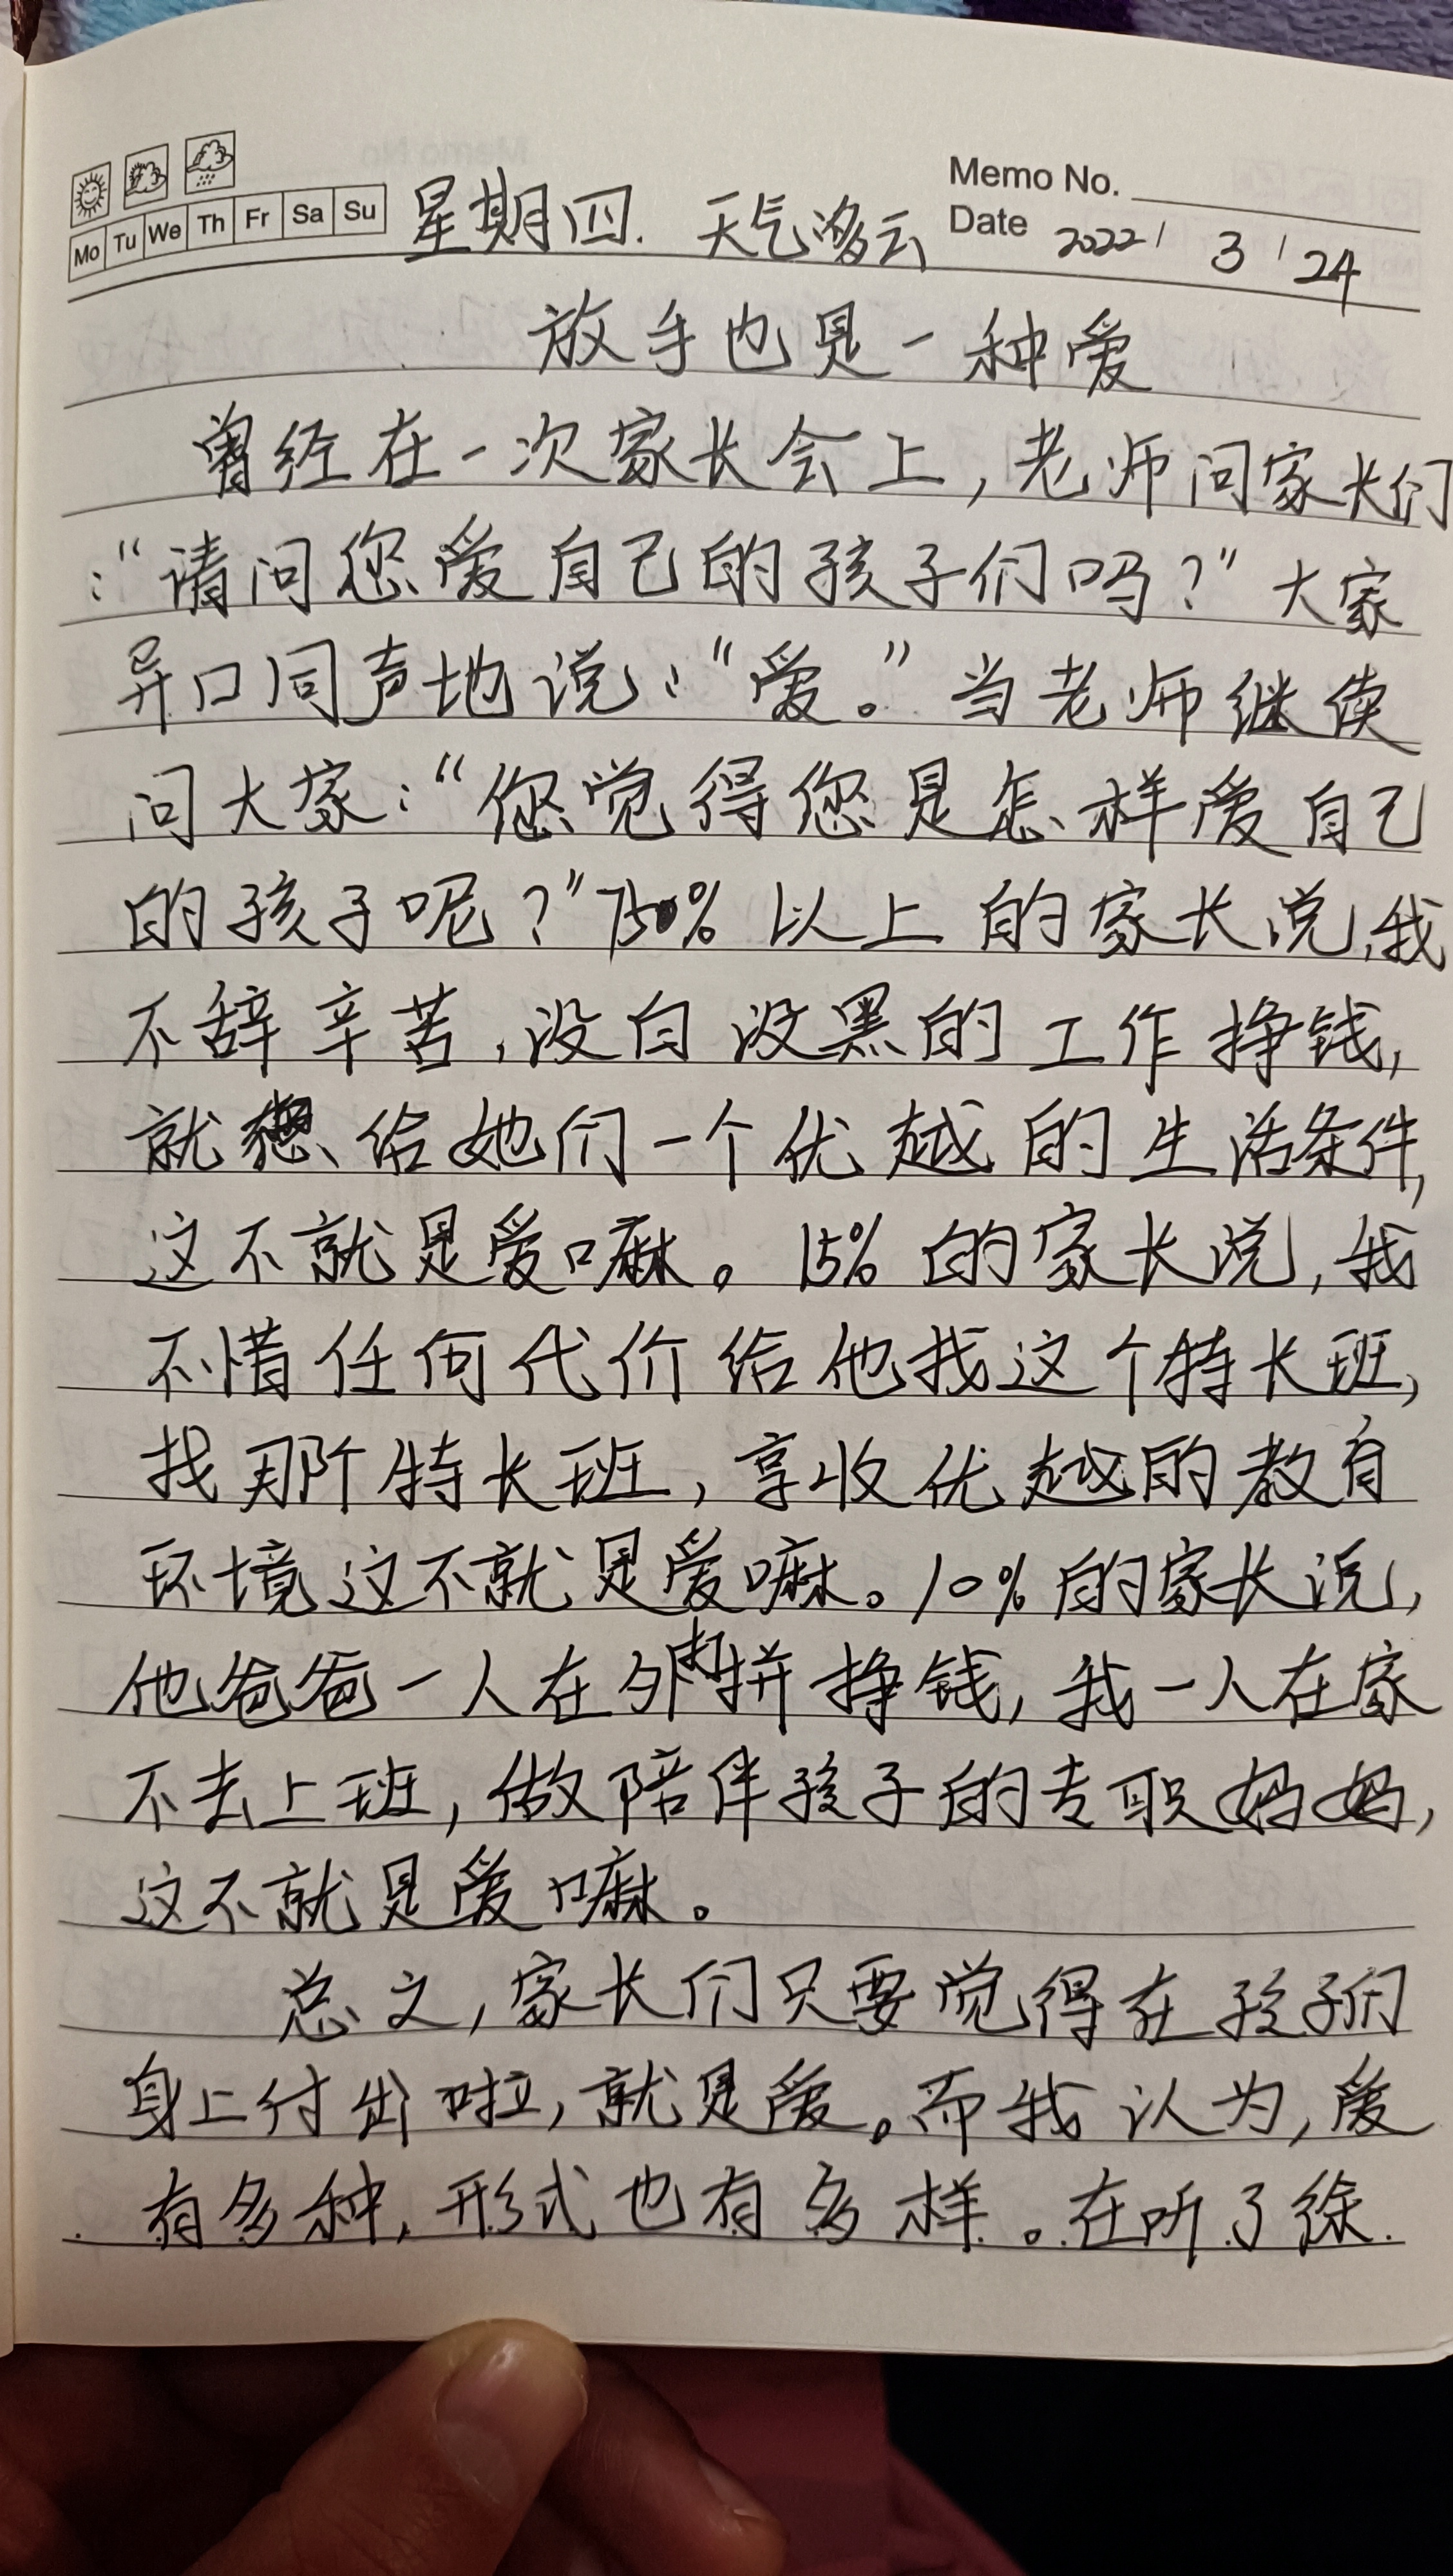 Memo No.
Mo Tu We Th Fr Sa Su 星期四. 天气多云 Date 2022 / 3 / 24
放手也是一种爱
曾经在一次家长会上,老师问家长们
:“请问您爱自己的孩子们吗?”大家
异口同声地说:“爱。”当老师继续
问大家:“您觉得您是怎样爱自己
的孩子呢?”75%以上的家长说,我
不辞辛苦,没白没黑的工作挣钱,
就想给她们一个优越的生活条件,
这不就是爱嘛。15%的家长说,我
不惜任何代价给他找这个特长班,
找那个特长班,享收优越的教育
环境这不就是爱嘛。10%的家长说,
他爸爸一人在外打拼挣钱,我一人在家
不去上班,做陪伴孩子的专职妈妈,
这不就是爱嘛。
总之,家长们只要觉得在孩子们
身上付出啦,就是爱。而我认为,爱
有多种,形式也有多样。在听了徐